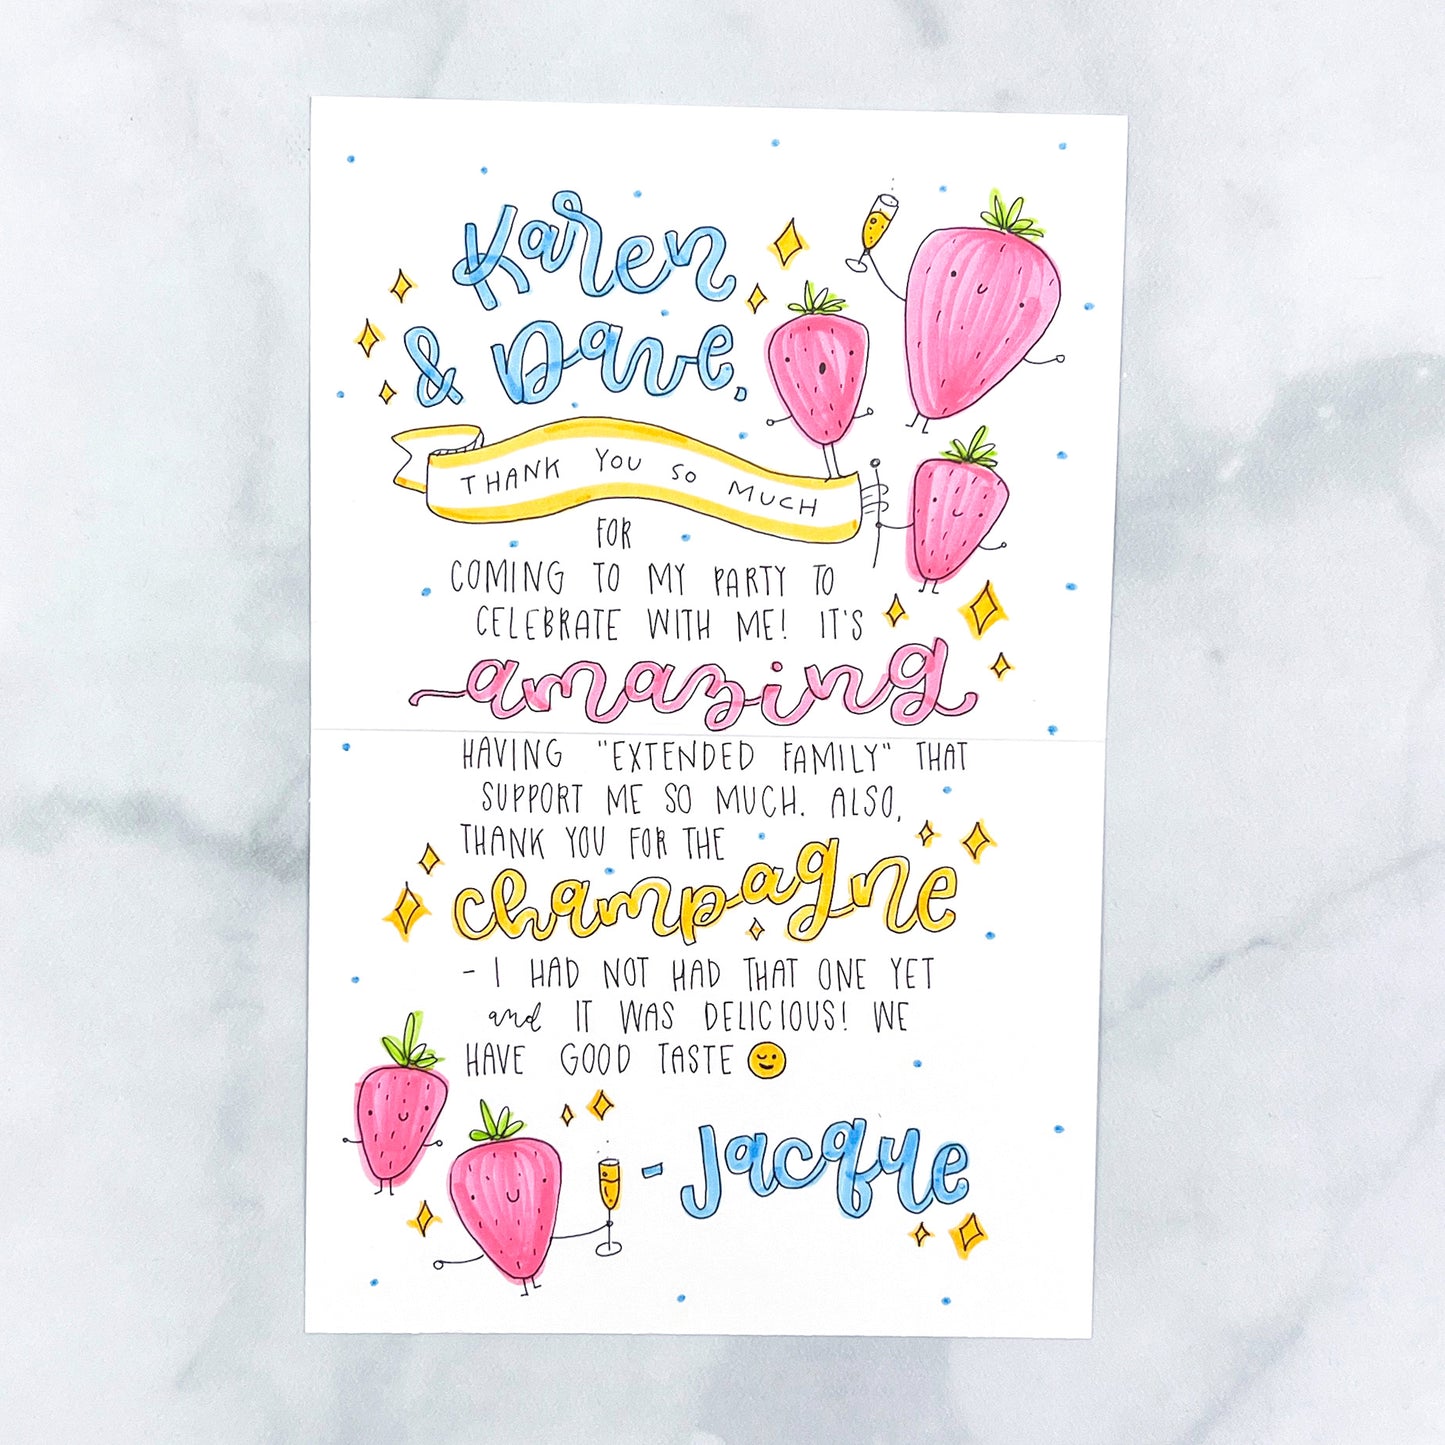 Karen
& Dave,
THANK YOU SO MUCH
FOR
COMING TO MY PARTY TO
CELEBRATE WITH ME! IT'S
amazing
HAVING "EXTENDED FAMILY" THAT
SUPPORT ME SO MUCH. ALSO,
THANK YOU FOR THE
champagne
- I HAD NOT HAD THAT ONE YET
and IT WAS DELICIOUS! WE
HAVE GOOD TASTE
- Jacque